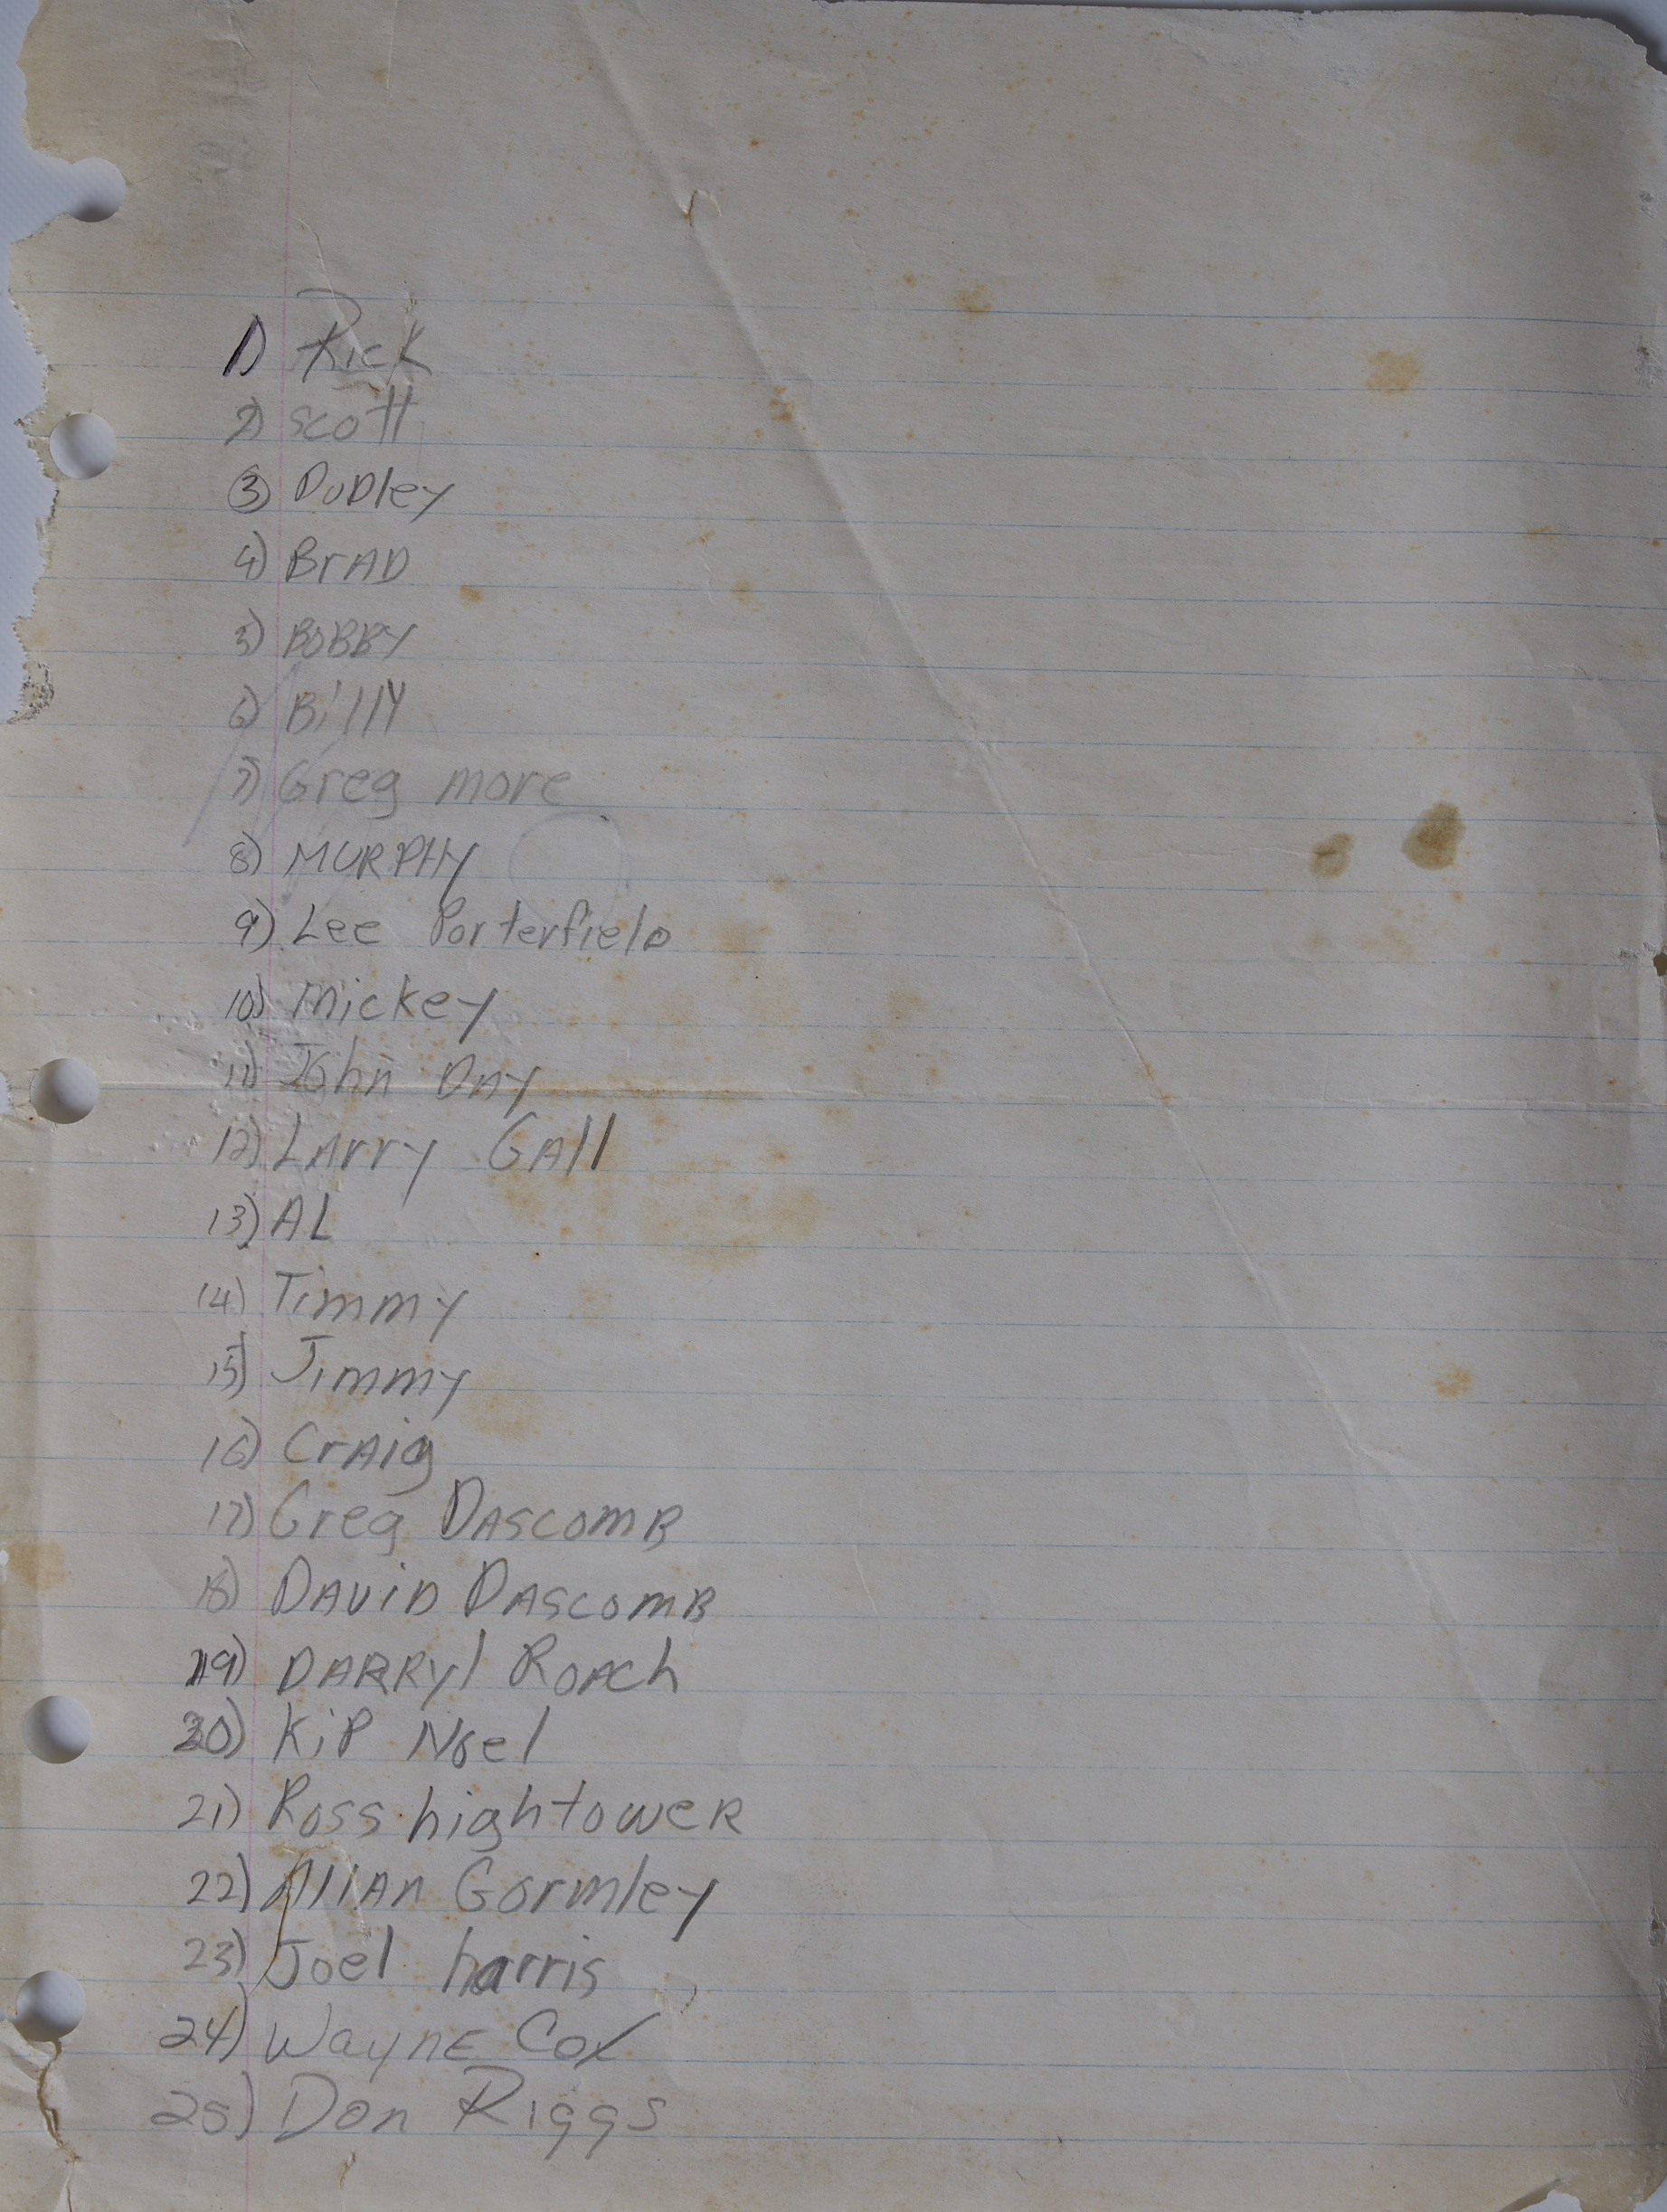 1) Rick
2) scott
3) DuDley
4) BrAD
5) BOBBY
6) Billy
7) Greg more
8) MURPHY
9) Lee PorterfielD
10) mickey
11) John DAy
12) LArry GAll
13) AL
14) Timmy
15) Jimmy
16) CrAig
17) Greg DAscomB
18) DAviD DAscomB
19) DARRyl RoAch
20) KiP Noel
21) Ross hightoweR
22) AllAn Gormley
23) Joel harris
24) WaynE Cox
25) Don Riggs